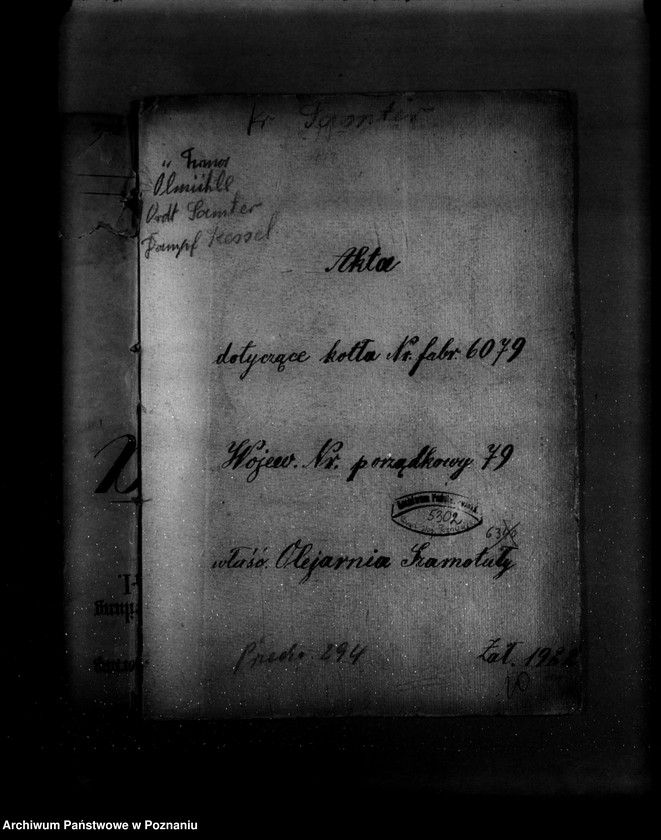 Kr Samter
Olmühle
Ordt Samter
Dampf Kessel
Akta
dotyczące kotła Nr. fabr. 6079
Wojew. Nr. porządkowy 79
Archiwum Państwowe
5302
właśc. Olejarnia Szamotuły
294
Zał.
Archiwum Państwowe w Poznaniu